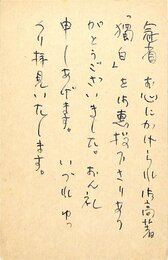 毎省 お心にかけられ御高著
「獨白」を御惠投下さりあり
がとうございました。おん礼
申しあげます。 いづれゆっ
くり拝見いたします。